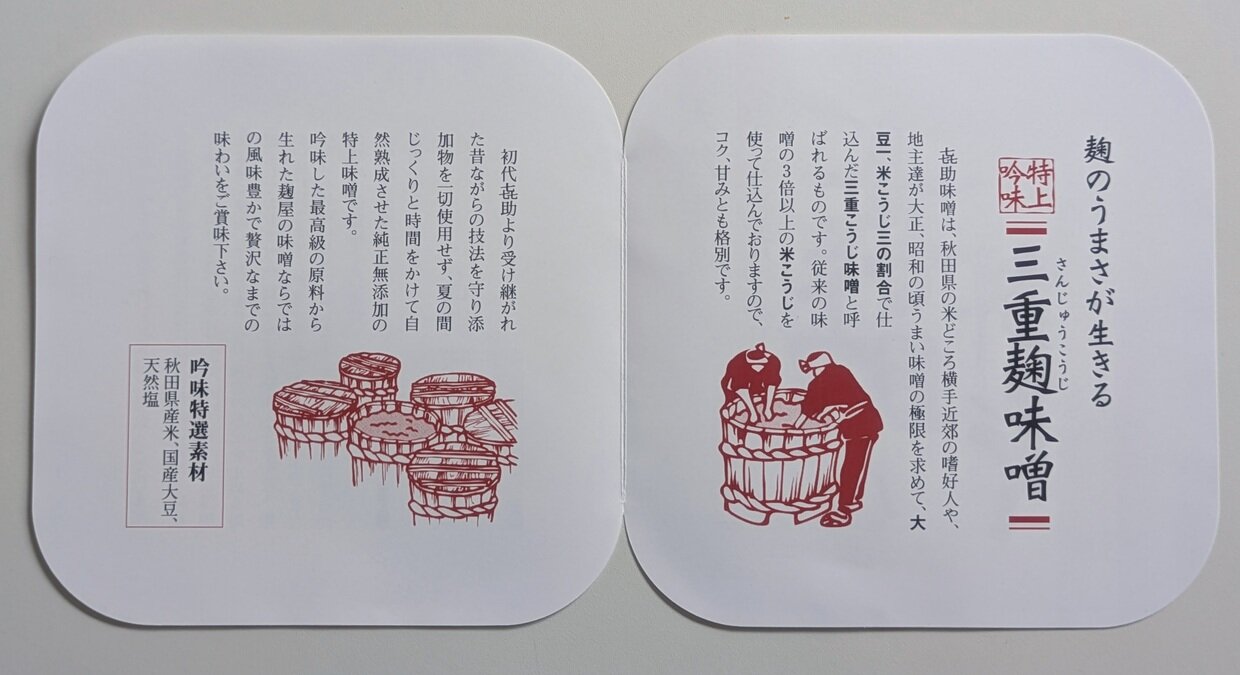 麹のうまさが生きる
特上
吟味
さんじゅうこうじ
三重麹味噌
㐂助味噌は、秋田県の米どころ横手近郊の嗜好人や、
地主達が大正、昭和の頃うまい味噌の極限を求めて、大
豆一、米こうじ三の割合で仕
込んだ三重こうじ味噌と呼
ばれるものです。従来の味
噌の3倍以上の米こうじを
使って仕込んでおりますので、
コク、甘みとも格別です。
初代㐂助より受け継がれ
た昔ながらの技法を守り添
加物を一切使用せず、夏の間
じっくりと時間をかけて自
然熟成させた純正無添加の
特上味噌です。
吟味した最高級の原料から
生れた麹屋の味噌ならでは
の風味豊かで贅沢なまでの
味わいをご賞味下さい。
吟味特選素材
秋田県産米、国産大豆、
天然塩